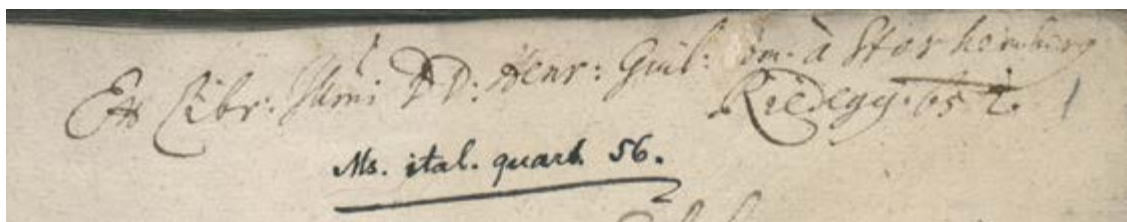 Ex Libr: Illmi DD: Henr: Guil: Com: à Starhemberg
Riedegg. 65
Ms. ital. quart. 56.